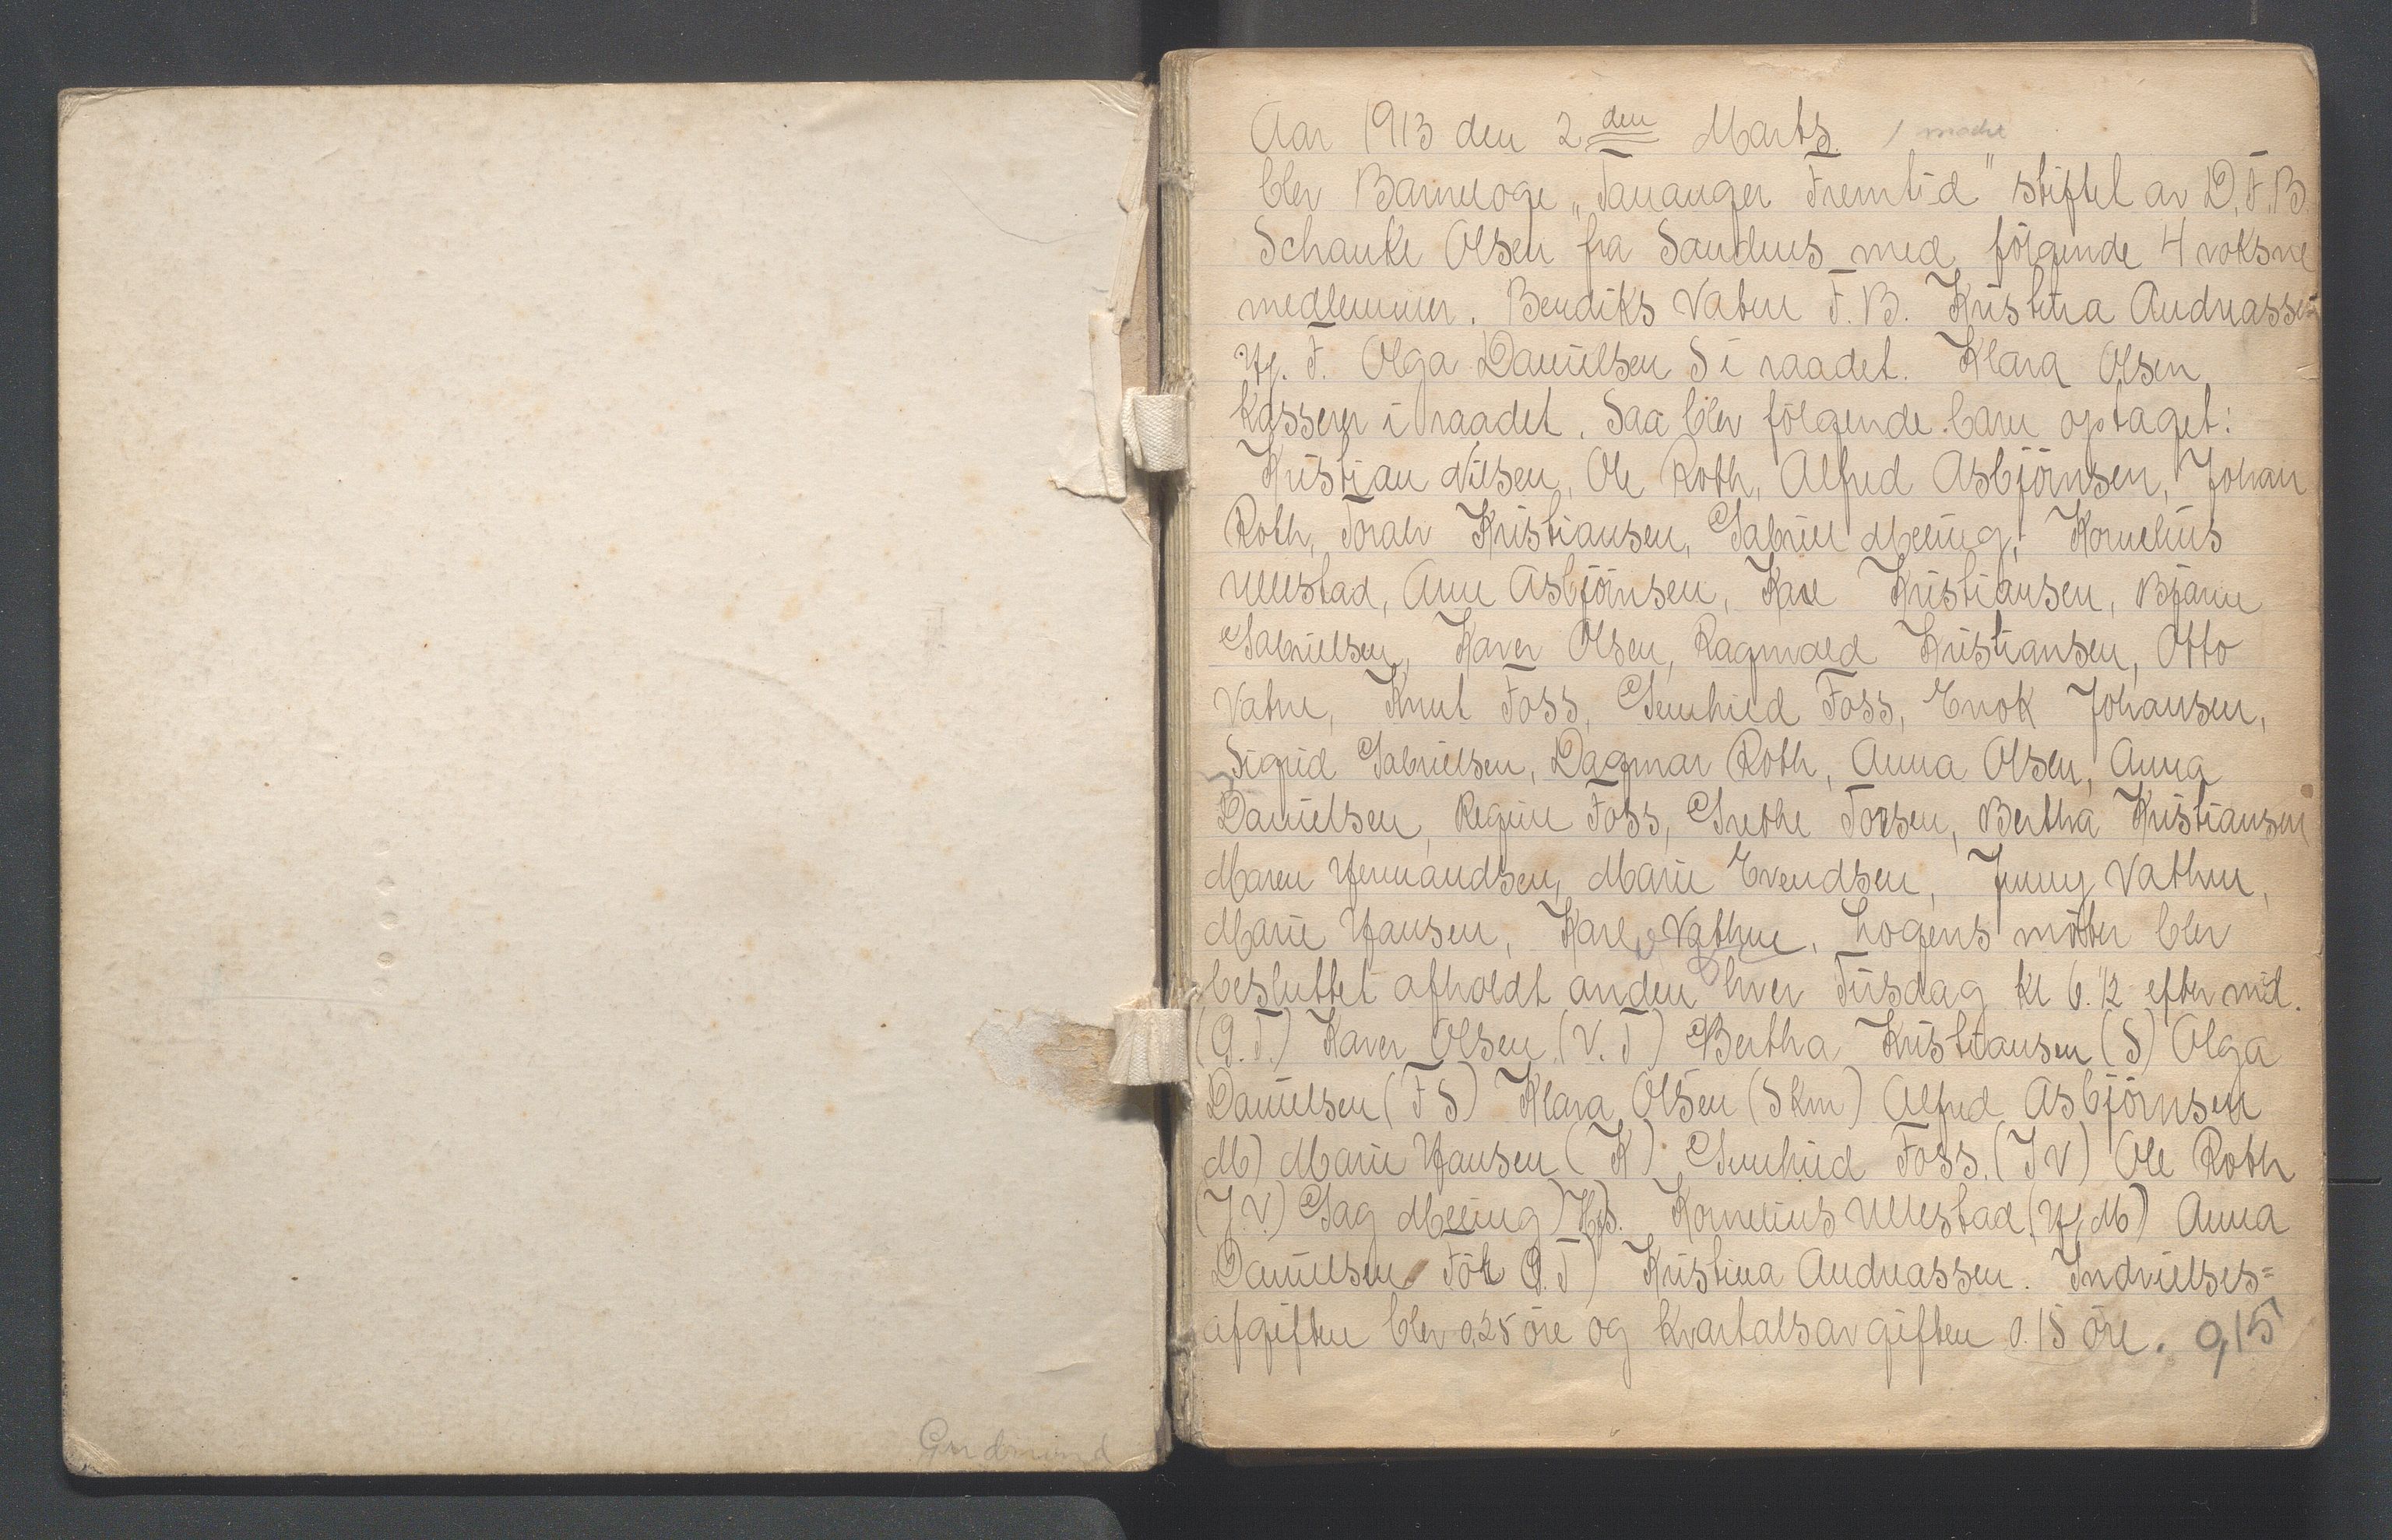 Gudmund
Aar 1913 den 2 den Marts. 1 møde
blev Barneloge „Tananger Fremtid" stiftet av D.F.B.
Schanke Olsen fra Sandnes med følgende 4 voksne
medlemmer. Bendiks Vatne F.B. Kristina Andreassen
Hj. F. Olga Danielsen S i raadet. Klara Olsen
kasserer i raadet. Saa blev følgende barn optaget:
Kristian Nilsen, Ole Roth, Alfred Asbjörnsen, Johan
Roth, Toralv Kristiansen, Gabriel Meling, Kornelius
Ullestad, Arne Asbjörnsen, Karl Kristiansen, Bjarne
Gabrielsen, Karen Olsen, Ragnvald Kristiansen, Otto
Vatne, Knut Foss, Gunhild Foss, Enok Johansen,
Sigrid Gabrielsen, Dagmar Roth, Anna Olsen, Anna
Danielsen, Regine Foss, Grethe Torsen, Bertha Kristiansen
Maren Hermandsen, Marie Evendsen, Jenny Vathne,
Marie Hansen, Karl Vathne. Logens möter blev
besluttet afholdt anden hver Tirsdag kl 6. 1/2 efter mid.
(G.T.) Karen Olsen (V.T) Bertha Kristiansen (S) Olga
Danielsen (F S) Klara Olsen (Skm) Alfred Asbjörnsen
M) Marie Hansen (K) Gunhild Foss. (I V) Ole Roth
(Y.V.) Gab Meling) H.S. Kornelius Ullestad (H M) Anna
Danielsen För G.T) Kristina Andreassen. Indvielses=
afgiften blev 0,25 öre og kvartalsavgiften 0.15 öre. 0,15